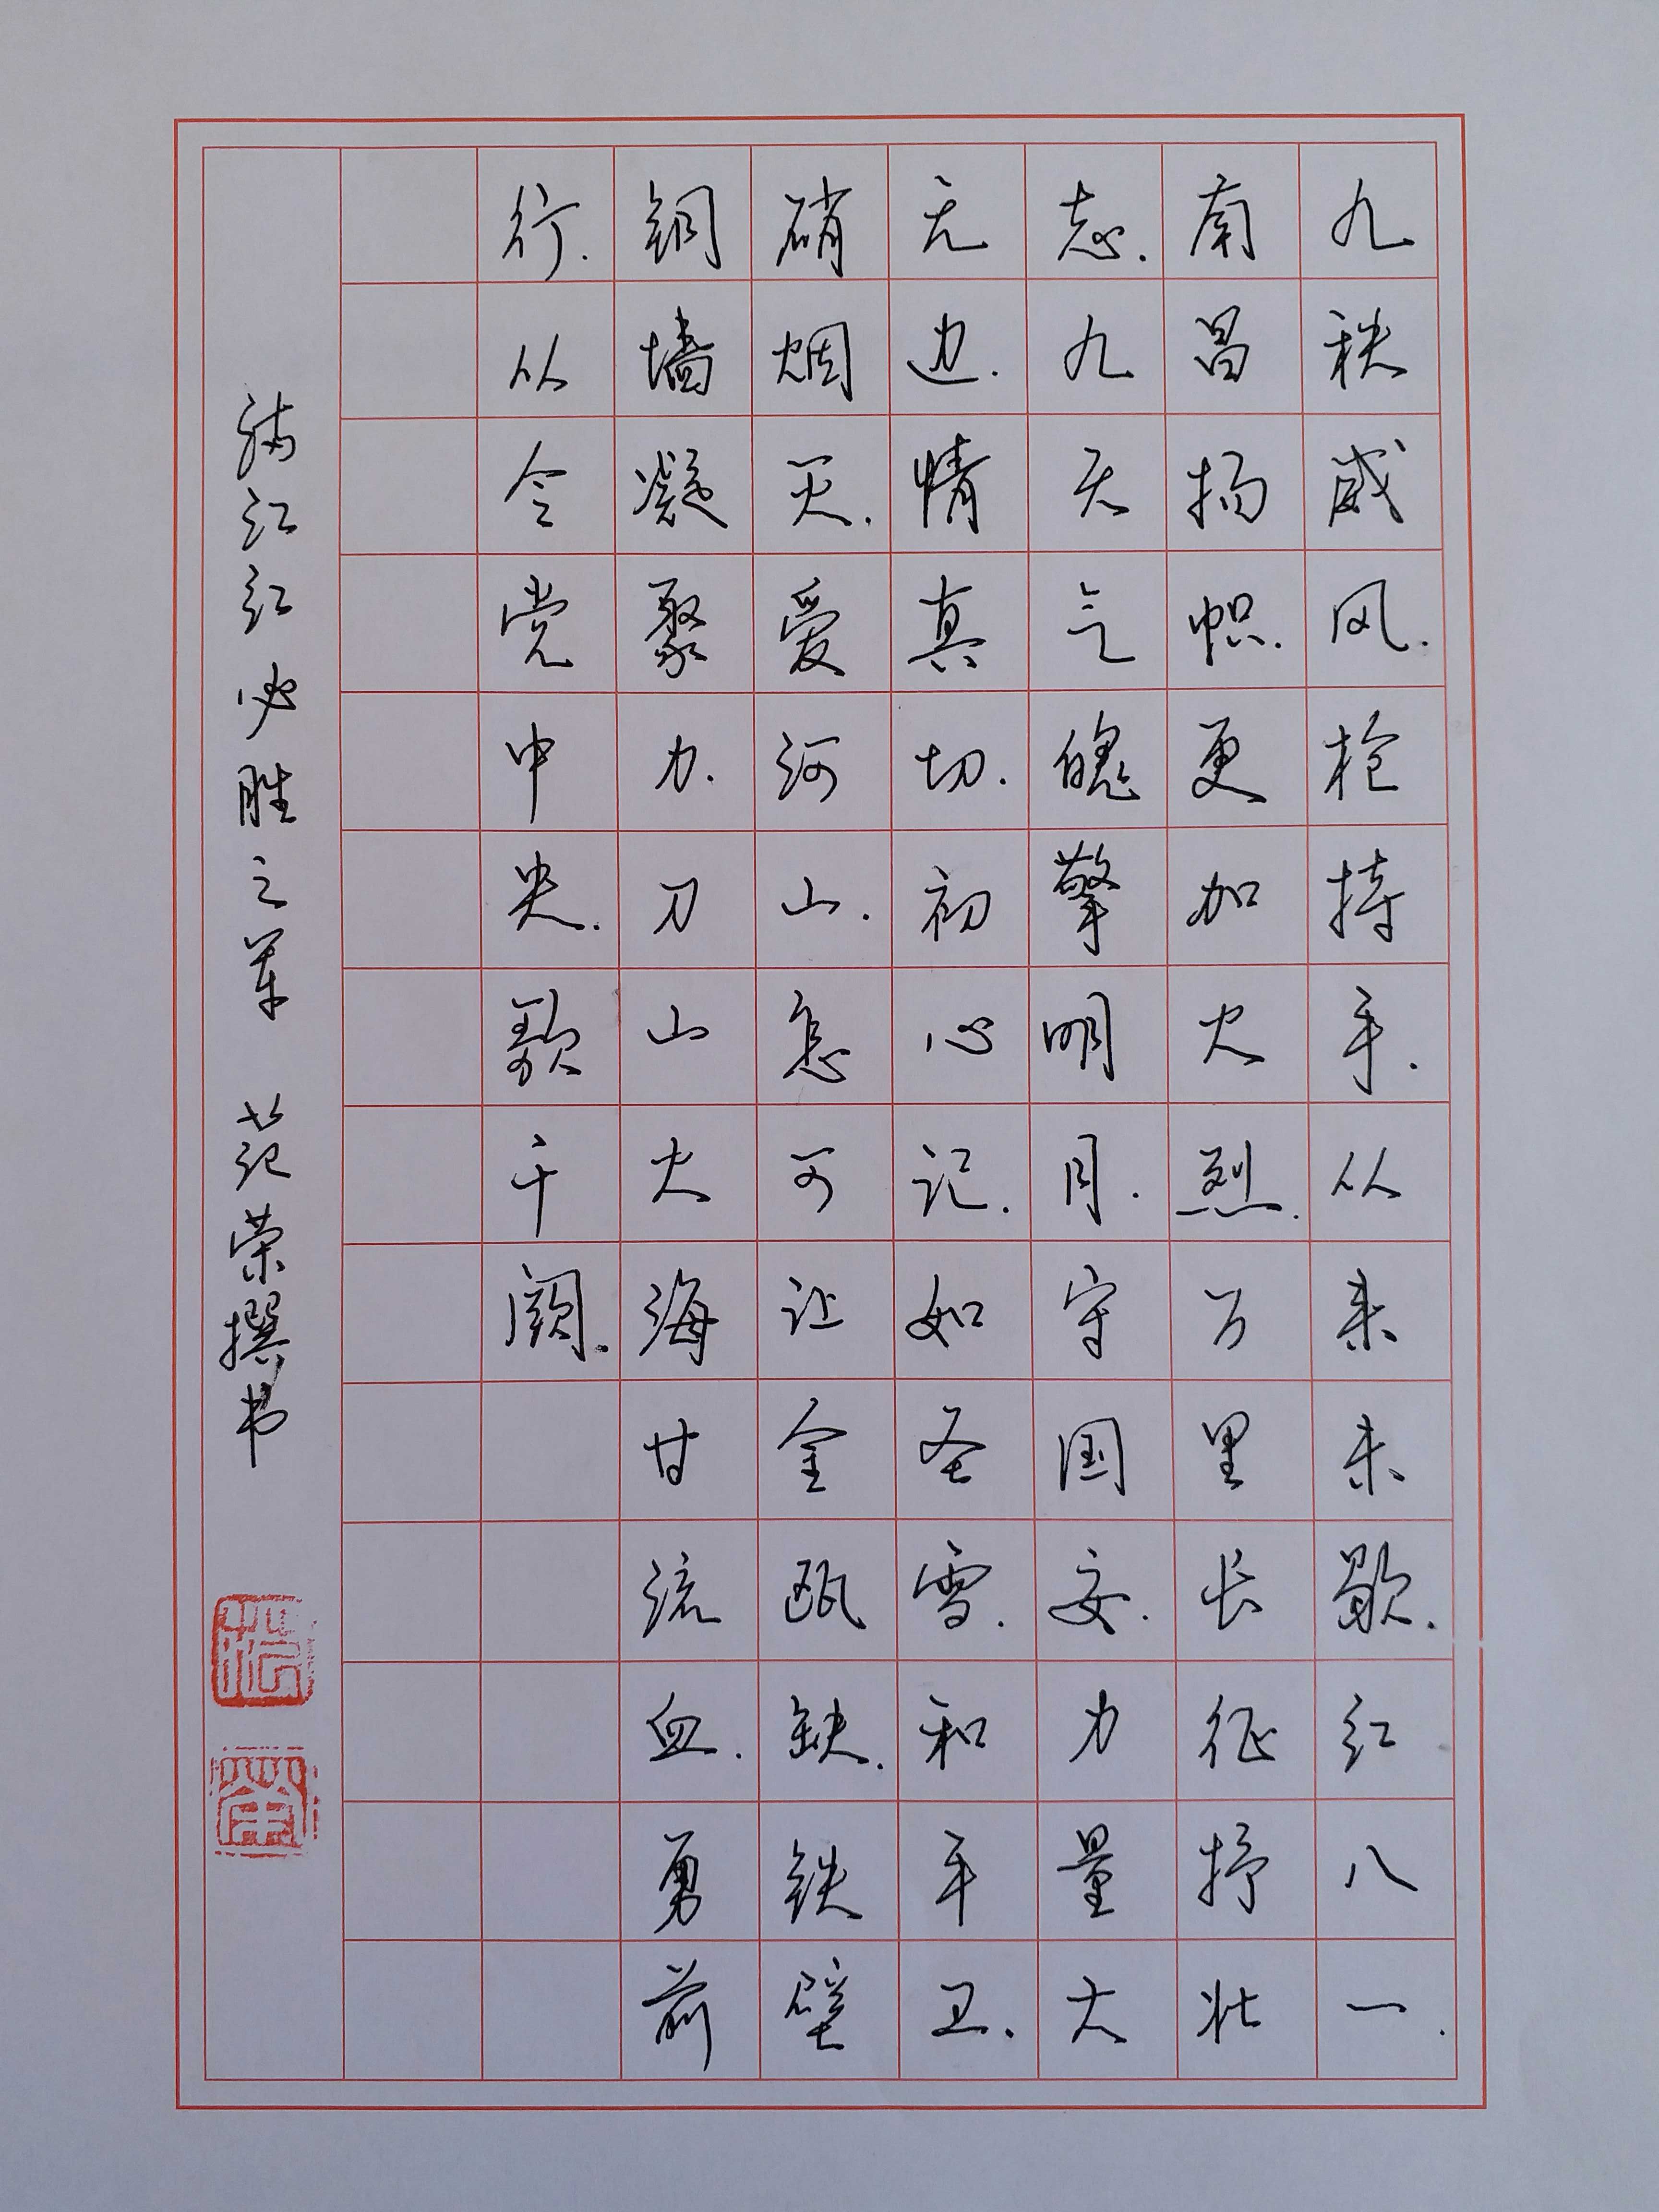 九秩威风.枪持手.从来未歇.红八一.
南昌扬帜.更加火烈.万里长征抒壮
志.九天气魄擎明月.守国安.力量大
无边.情真切.初心记.如圣雪.和平卫.
硝烟灭.爱河山.怎可让金瓯缺.铁壁
铜墙凝聚力.刀山火海甘流血.勇前
行.从令党中央.歌千阕.
满江红 必胜之军 范荣撰书
范
荣